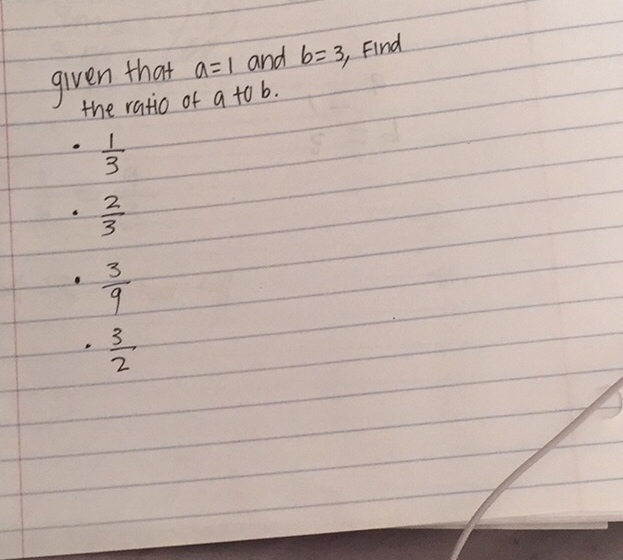 given that a=1 and b=3, Find
the ratio of a to b.
• 1/3
• 2/3
• 3/9
• 3/2